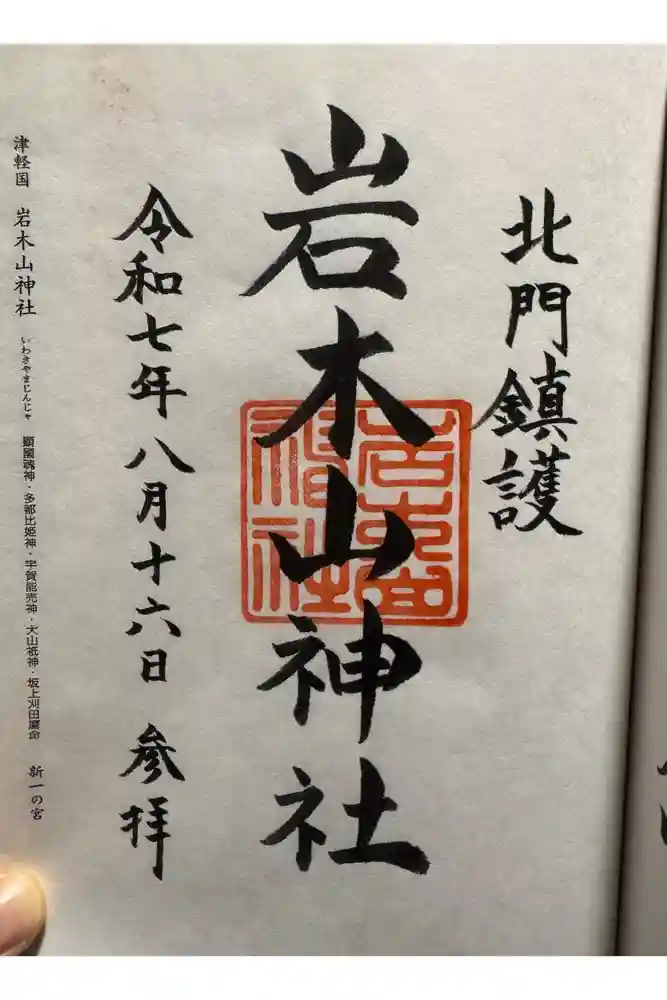 北門鎮護
岩木山神社
岩木山神社
令和七年八月十六日 参拝
津軽国 岩木山神社 いわきやまじんじゃ 顕國魂神・多都比姫神・宇賀能売神・大山祇神・坂上刈田麿命 新一の宮